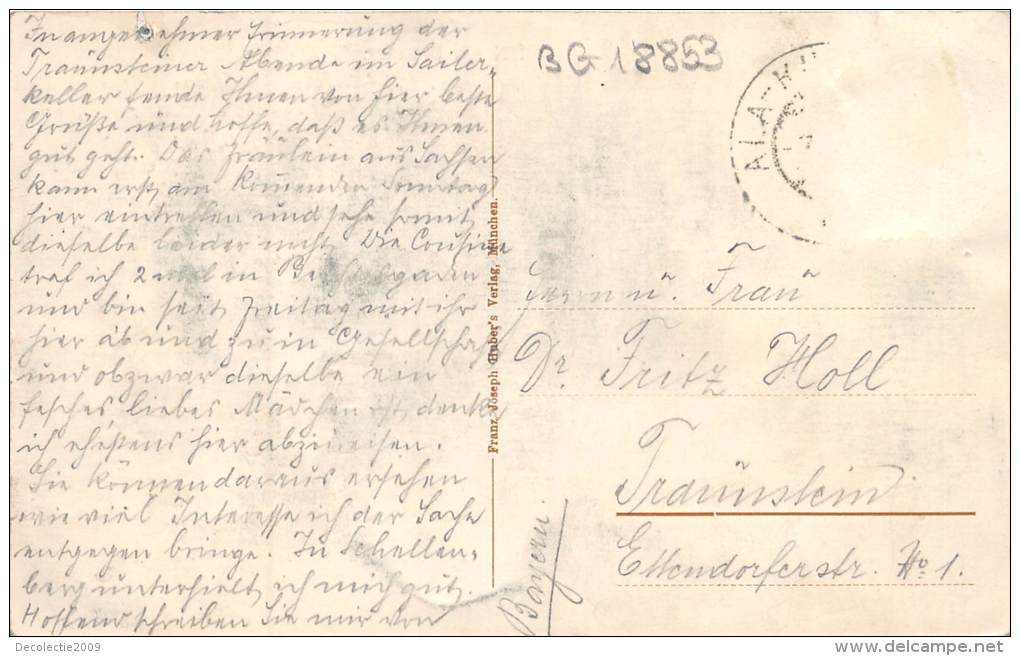 In angenehmer Erinnerung der
Traunsteiner Abende im Sailer-
keller sende Ihnen von hier beste
Grüße und hoffe, daß es Ihnen
gut geht. Das Fräulein aus Sachsen
kann erst am kommenden Sonntag
hier eintreffen und sehe somit
dieselbe leider nicht. Die Cousine
traf ich 2 mal in Berchtesgaden
und bin seit Freitag mit ihr
hier ab und zu in Gesellschaft
und obzwar dieselbe ein
fesches liebes Mädchen ist, denke
ich ehestens hier abzureisen.
Sie können daraus ersehen
wie viel Interesse ich der Sache
entgegen bringe. In Schellen-
berg unterhielt ich mich gut.
Hoffend schreiben Sie mir von
Franz Joseph Huber's Verlag, München.
BG 18853
ALA-
Herrn u. Frau
Dr. Fritz Holl
Traunstein
Ettendorferstr. No 1.
Bayern
Decolectie2009
delcampe.net